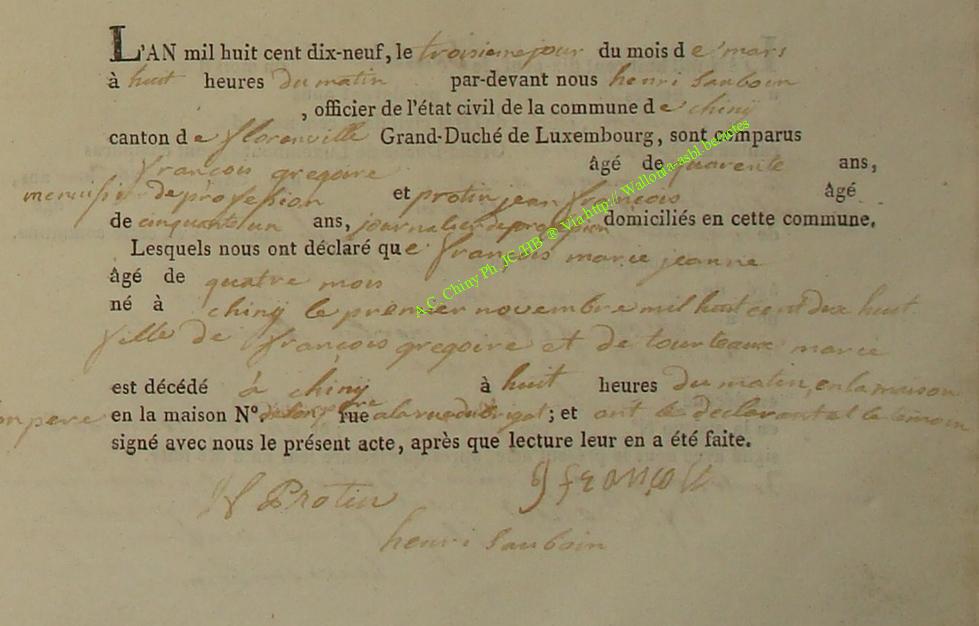 L'AN mil huit cent dix-neuf, le troisieme jour du mois de mars
à huit heures du matin par-devant nous henri sauboin
, officier de l'état civil de la commune de chiny
canton de florenville Grand-Duché de Luxembourg, sont comparus
françois gregoire âgé de quarente ans,
de profession et protin jean françois âgé
de cinquante un ans, journalier de profession domiciliés en cette commune.
Lesquels nous ont déclaré que françois marie jeanne
âgé de quatre mois
né à chiny le premier novembre mil huit cent dix huit
fille de françois gregoire et de tourteaux marie
est décédé à chiny à huit heures du matin, en la maison
en la maison N°. rue a la rue du ; et ont le declarant et le temoin
signé avec nous le présent acte, après que lecture leur en a été faite.
Protin g françois
henri sauboin
A.C. Chiny Ph. JC/HB ® Via http://Wallonia-asbl.be/actes